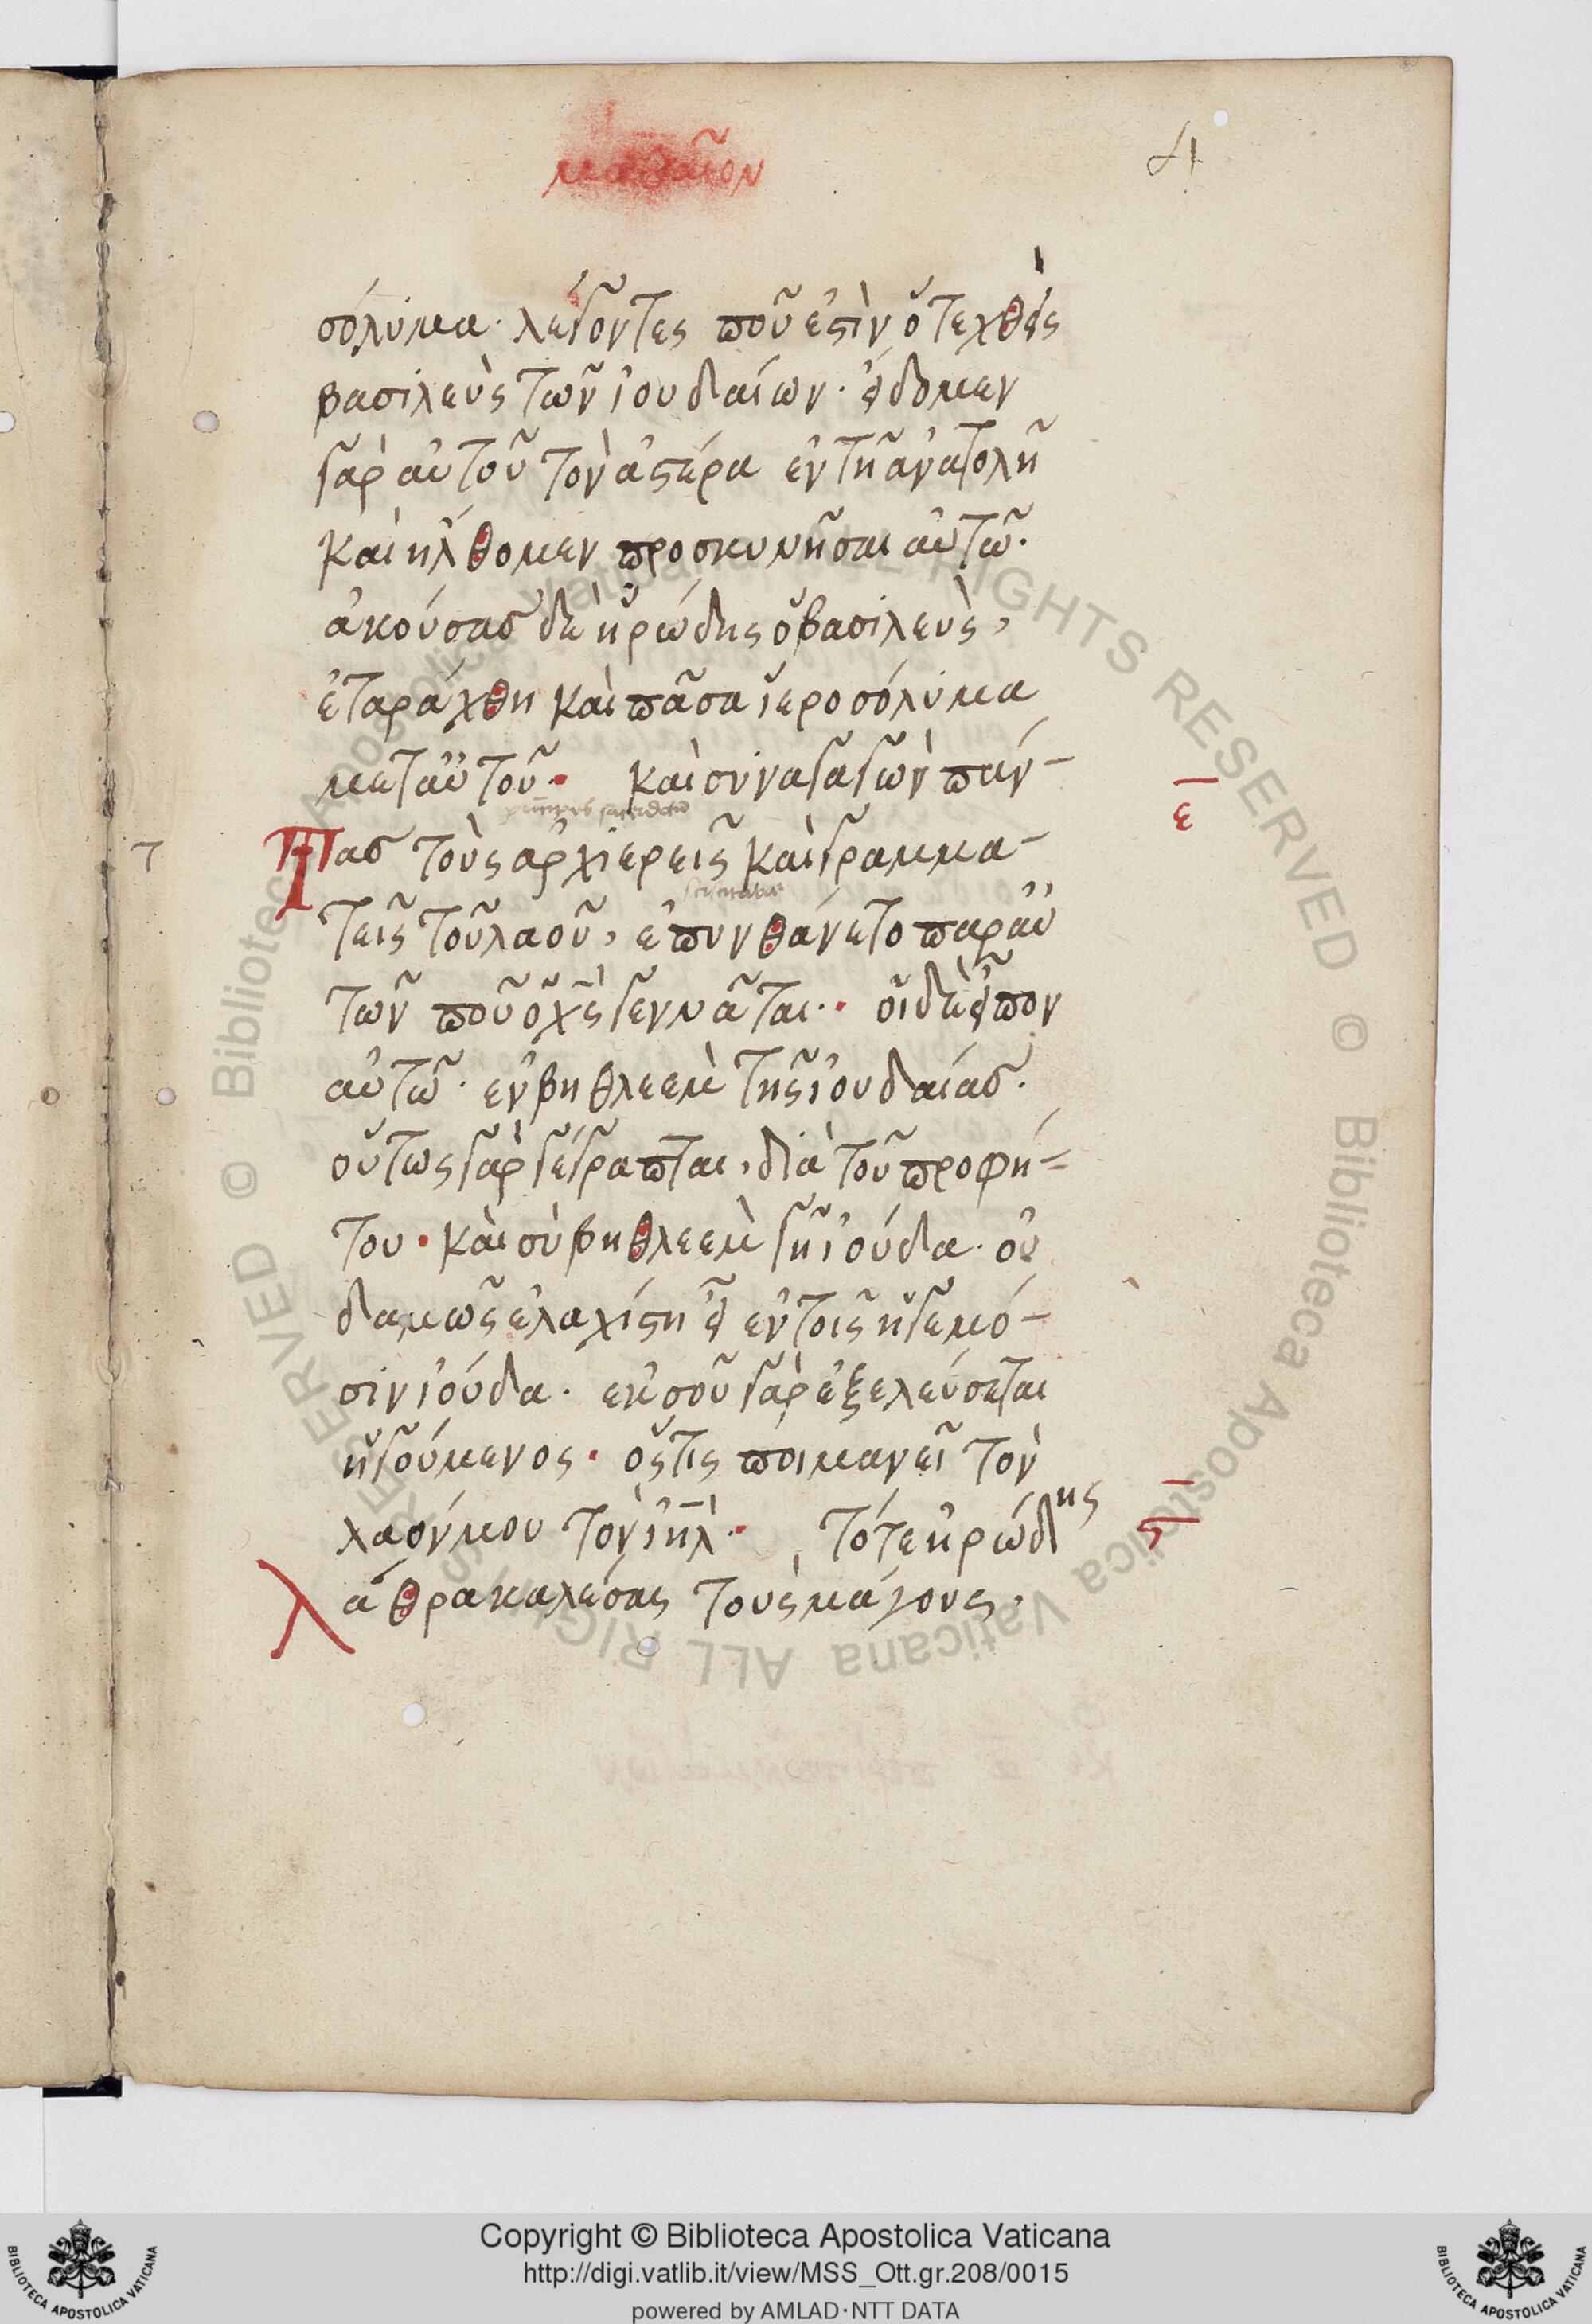 μαθαῖον
4
σόλυμα· λέγοντες ποῦ ἐστὶν ὁ τεχθεὶς
βασιλεὺς τῶν ἰουδαίων· εἴδομεν
γὰρ αὐτοῦ τὸν ἀστέρα ἐν τῆ ἀνατολῆ
καὶ ἤλθομεν προσκυνῆσαι αὐτῶ·
ἀκούσας δὲ ἡρώδης ὁ βασιλεὺς,
ἐταράχθη καὶ πᾶσα ἱεροσόλυμα
μετ αὐτοῦ· καὶ συναγαγὼν πάν-
principes sacerdotum
τ
ε
Τας τοὺς ἀρχιερεῖς καὶ γραμμα-
τεῖς τοῦ λαοῦ, ἐπυνθάνετο παρ αὐ
τῶν ποῦ ὁ χς γεννᾶται· οἱ δὲ εἶπον
αὐτῶ· ἐν βηθλεὲμ τῆς ἰουδαίας·
οὕτως γὰρ γέγραπται, διὰ τοῦ προφή-
του· καὶ σὺ βηθλεὲμ γῆ ἰούδα· οὐ
δαμῶς ἐλαχίστη εἶ ἐν τοῖς ἡγεμό-
σιν ἰούδα· ἐκ σοῦ γὰρ ἐξελεύσεται
ἡγούμενος· ὅστις ποιμανεῖ τὸν
λαόν μου τὸν ιηλ· τότε ἡρώδης
ς
λάθρα καλέσας τοὺς μάγους,
Copyright © Biblioteca Apostolica Vaticana
http://digi.vatlib.it/view/MSS_Ott.gr.208/0015
powered by AMLAD·NTT DATA